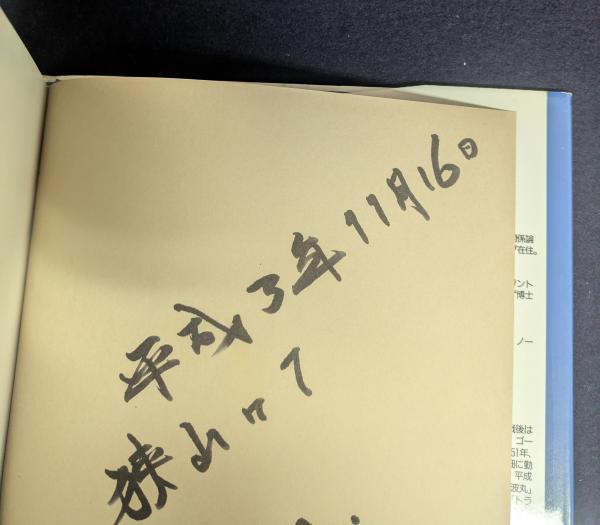 平成3年11月16日
狭山にて
関係論
在住。
ント
博士
ノー
戦後は
ゴー
51年、
に勤
平成
波丸」
トラ